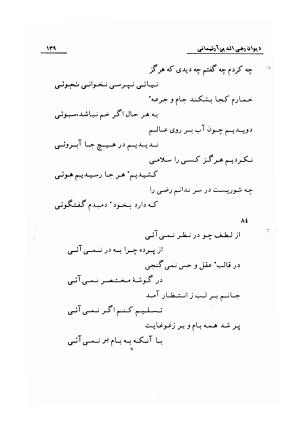 دیوان رضی الدین آرتیمانی
۱۳۹
چه کردم چه گفتم چه دیدی که هرگز
نیائی نپرسی نخوانی نجوئی
خمارم کجا بشکند جام و جرعه*
به هر حال اگر خم نباشد، سبوئی
دویدیم چون آب بر روی عالم
ندیدیم در هیچ جا آبروئی
نکردیم هرگز کسی را سلامی
کشیدیم* هر جا رسیدیم هوئی
چه شوریست در سر ندانم رضی را
که دارد بخود* دمبدم گفتگوئی
۸۴
از لطف چو در نظر نمی آئی
از پرده چرا به در نمی آئی
در قالب* عقل و حس نمی گنجی
در گوشهٔ مختصر نمی آئی
جانم بر لب ز انتظار آمد
تسلیم کنم اگر نمی آئی
پر شد همه بام و بر زغوغایت
با آنکه به بام بر نمی آئی